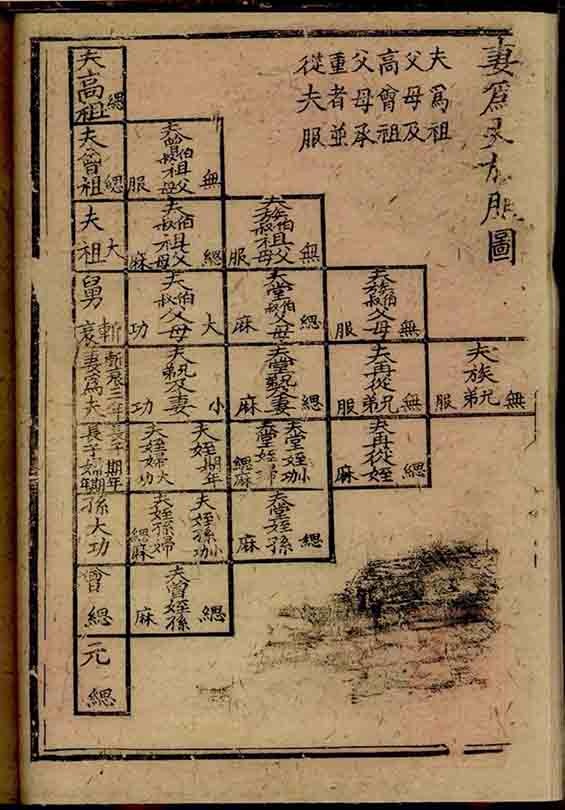 妻爲夫族服圖
夫爲祖
父母及
高曾祖
父母承
重者並
從夫服
夫高祖 緦
夫曾伯叔祖父母 無服
夫曾祖 緦
夫族伯叔祖父母 無服
夫伯叔祖父母 緦麻
夫祖 大
夫族伯叔父母 無服
夫堂伯叔父母 緦麻
夫伯叔父母 大功
舅 斬衰
夫族兄弟 無服
夫再從兄弟 無服
夫堂兄弟及妻 緦麻
夫兄弟及妻 小功
妻爲夫 斬衰三年
夫再從姪 緦麻
夫堂姪小功
夫堂姪婦緦麻
夫姪期年
夫姪婦大功
長子 期年
長子婦期年
夫堂姪孫 緦麻
夫姪孫小功
夫姪孫婦緦麻
孫大功
夫曾姪孫 緦麻
曾 緦
元 緦